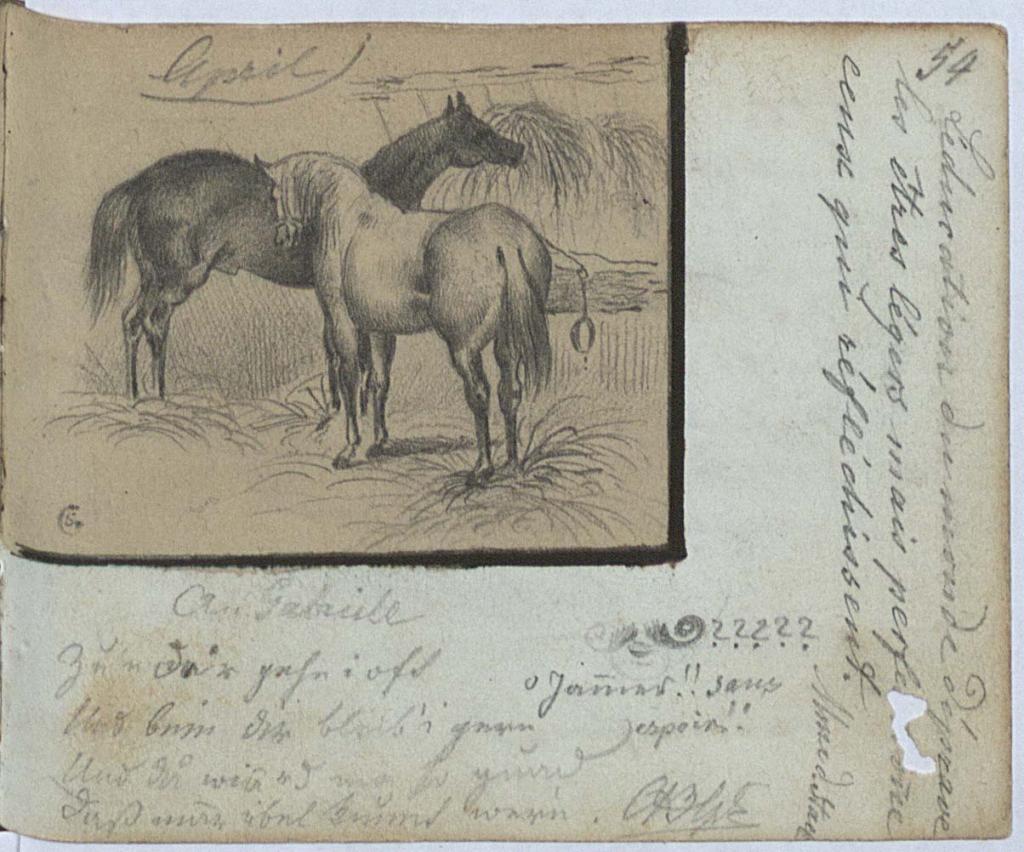 April
54
L'éducation du monde déprave
les êtres légers mais perfe ne
ceux qui réfléchissent.
An Gabriele
Zu dir geh i oft
Und beim dir bleib' i gern
Und da wird so guad
Daß mar ibel kunnt wern.
?????
o Jammer!! sans
espoir!!